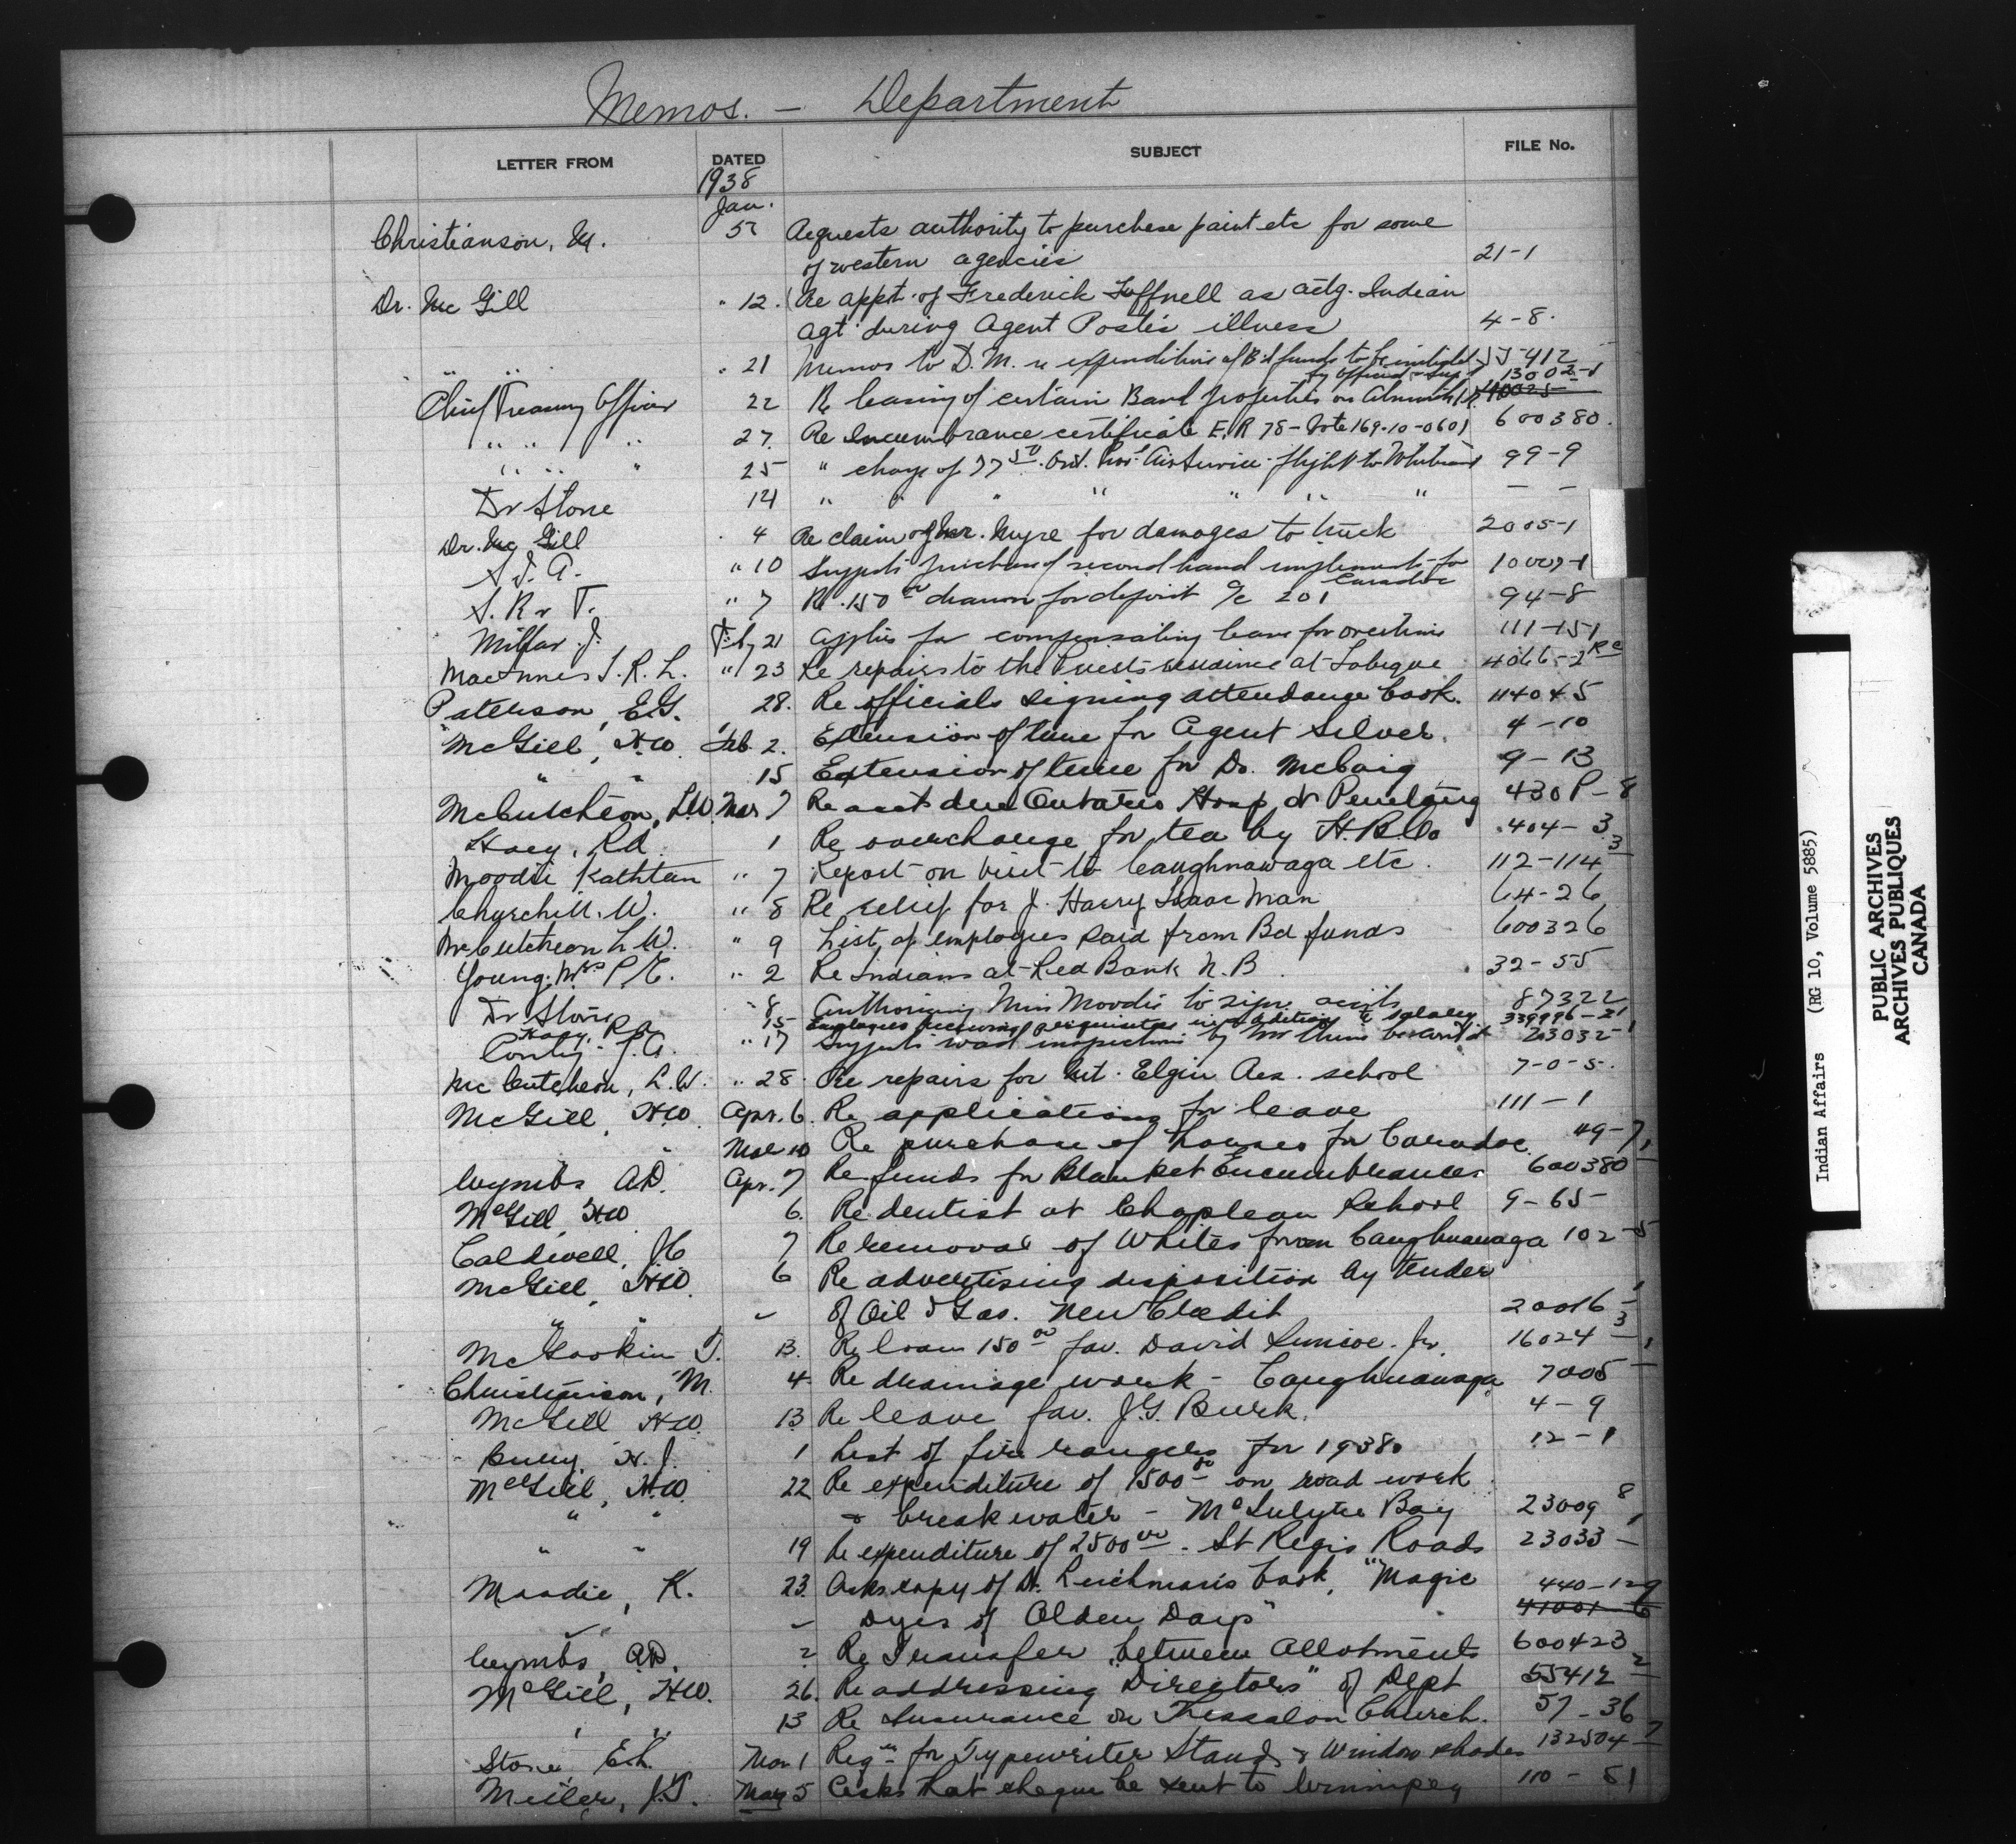 Memos. — Department
LETTER FROM DATED SUBJECT FILE No.
1938
Jan.
Christianson, M. 5 Requests authority to purchase paint etc for some
of western agencies 21-1
Dr. McGill " 12. Re appt. of Frederick Tuffnell as actg. Indian
Agt. during Agent Poste's illness 4-8.
" " " 21 Memos to D.M. re expenditure of Bd funds to be 55-412
Chief Treasury Officer 22 Re leasing of certain Band properties on 13002-1
" " " 27. Re Incumbrance certificate E.R 78 - Vote 169-10-0601 600380.
" " " 25 " charge of 77 50 Ont. Prov. Air Service flight to 99-9
Dr Stone 14 " " " " " " " — —
Dr. McGill 4 Re claim of Mr. Myre for damages to truck 2005-1
S.T.A. " 10 Suggests purchase of second hand implements for Caradoc 10007-1
S. R & T. " 7 Re 150 00 drawn for deposit a/c 201 94-8
Millar J. Feb 21 Applies for compensating leave for overtime 111-151
MacInnes T.R.L. " 23 Re repairs to the Priest's residence at Lobique 4066-2 RC
Paterson, E.G. 28. Re officials signing attendance book. 114045
McGill, H.W. Feb. 2. Extension of time for Agent Silver. 4-10
" " 15 Extension of time for Dr. McCaig 9-13
McCutcheon, L.W. Mar 7 Re acct due Ontario Hosp at Penetang 430P-8
Hoey, R.A. 1 Re overcharge for tea by H.B.Co 404-3
Moodie Kathleen " 7 Report on visit to Caughnawaga etc. 112-114 3
Churchill. W. " 8 Re relief for J. Harry Isaac Man 64-26
McCutcheon L.W. " 9 List of employees paid from Bd funds 600326
Young, Mrs P.E. " 2 Re Indians at Red Bank N.B. 32-55
Dr Stone " 8 Authorizing Miss Moodie to sign accts 87322
Hoey, R.A. 15 Employees receiving perquisites in addition to salary 339996-21
Conty. J.A. " 17 Suggests road inspections by Mr 23032-1
McCutcheon, L.W. " 28 Re repairs for Mt. Elgin Res. school 7-0-5.
McGill, H.W. Apr. 6. Re applications for leave 111-1
" Mar 10 Re purchase of horses for Caradoc. 49-7,
Coymbs A.D. Apr. 7 Re funds for Blanket Encumbrances 600380
McGill, H.W. 6. Re dentist at Chapleau School 9-65
Caldwell, J.C. 7 Re removal of Whites from Caughnawaga 102-5
McGill, H.W. 6 Re advertising disposition by tender
" " of Oil & Gas. New Credit 20016-1
McGookin T. 13. Re loan 150 00 fav. David Simcoe. Jr. 16024-3
Christianson, M. 4 Re drainage work - Caughnawaga 7005-1
McGill H.W. 13 Re leave fav. J.G. Burk. 4-9
Bury, H.J. 1 List of fire rangers for 1938. 12-1
McGill, H.W. 22 Re expenditure of 1500 00 on road work
" " & breakwater - McIntyre Bay 23009 8
" " 19 Re expenditure of 2500 00 - St Regis Roads 23033-1
Moodie, K. 23. Asks copy of Dr. Leechman's book, "Magic 440-129
Dyes of Olden Days" 41001-6
Coymbs, A.D. 2 Re Transfer between Allotments 600423
McGill, H.W. 26. Re addressing "Directors" of Dept 55412-2
" " 13 Re Insurance on Thessalon Church. 57-36
Stone, E.L. Mar 1 Reqn for Typewriter Stand & Window shades 132504-7
Miller, J.T. May 5 Casks that cheque be sent to Winnipeg 110-81
Indian Affairs (RG 10, Volume 5885)
PUBLIC ARCHIVES
ARCHIVES PUBLIQUES
CANADA